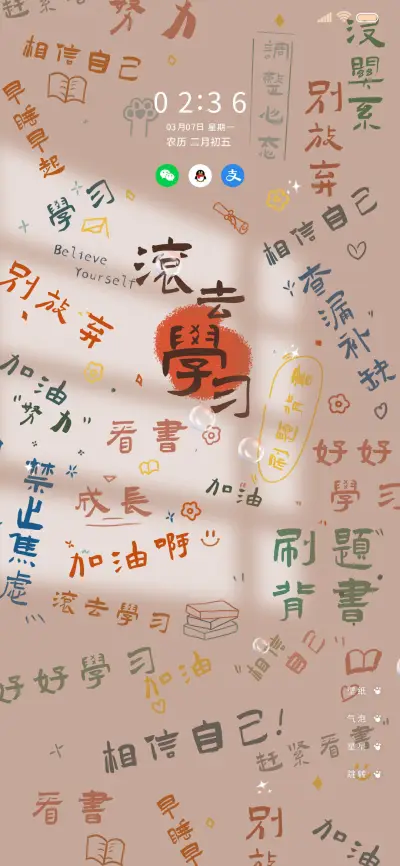 赶紧看書
努力
沒關系
相信自己
調整心态
02:36
早睡早起
别放弃
03月07日 星期一
农历 二月初五
學习
相信自己
Believe
Yourself
滾去
學习
别放弃
查漏补缺
加油
"努力"
刷題背書
看書
好好
學习
禁止焦虑
成長
加油
加油啊
刷題
背書
滾去學习
好好學习
加油
"相信自己"
壁纸
气泡
相信自己!
赶紧看書
星星
跳转
看書
早睡早起
别放弃
加油